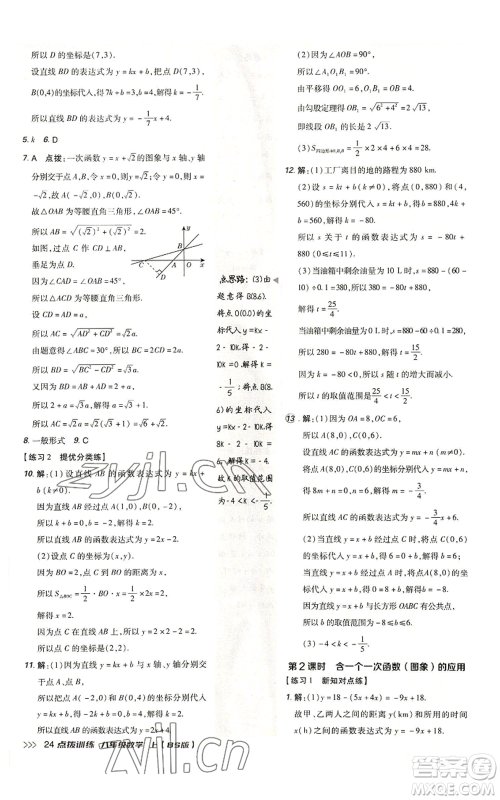 所以 D 的坐标是(7,3).
设直线 BD 的表达式为 y=kx+b,把 D(7,3),
B(0,4)的坐标代入,得 7k+b=3,b=4,所以 k=-1/7.
所以直线 BD 的表达式为 y=-1/7x+4.
5. k 6. D
7. A 点拨:一次函数 y=x+√2的图象与 x 轴、y 轴
分别交于点 A,B,令 x=0,则 y=√2,令 y=0,则
x=-√2,
故△OAB 为等腰直角三角形,∠OAB=45°.
所以 AB=√(√2)²+(√2)²=2.
如图,过点 C 作 CD⊥AB,
垂足为点 D.
因为∠CAD=∠OAB=45°,
所以△ACD 为等腰直角三角形.
设 CD=AD=a,
所以 AC=√AD²+CD²=√2a.
由题意得∠ABC=30°,所以 BC=2CD=2a.
所以 BD=√BC²-CD²=√3a.
又因为 BD=AB+AD=2+a,
所以 2+a=√3a,解得 a=√3+1.
所以 AC=√2a=√6+√2.
8. 一般形式 9. C
【练习2 提优分类练】
10. 解:(1)设直线 AB 的函数表达式为 y=kx+
b(k≠0).
因为直线 AB 过点 A(1,0),B(0,-2),
所以 k+b=0,b=-2,所以 k=2.
所以直线 AB 的函数表达式为 y=2x-2.
(2)设点 C 的坐标为(m,n),
因为 B(0,-2),所以 BO=2.
所以 S△BOC=1/2·BO·m=1/2×2m=2.
所以 m=2.
因为点 C 在直线 AB 上,
所以 n=2×2-2=2.
所以点 C 的坐标是(2,2).
11. 解:(1)因为点 A 的坐标为(-6,0),
所以 OA=6.
24 点拨训练 八年级数学 上(BS版)
点思路:(3)由
题意得 G(8,6).
将点 O(0,0)的
坐标代入 y=kx-
2-10k,得-2-
10k=0,得 k=-
1/5;将点 G(8,6)
的坐标代入
y=kx-2-10k,得
8k-2-10k=6,解
得 k=-4.
故 k 的取值范围
为-4≤k≤-1/5.
(2)因为∠AOB=90°,
所以∠AOB₁=90°.
由平移得 OO₁=6,O₁B₁=OB=4.
由勾股定理得 OB₁=√6²+4²=2√13,
即线段 OB₁的长为 2√13.
12. 解:(1)工厂离目的地的路程为 880 km.
(2)设 s=kt+b(k≠0),将点(0,880)和(4,
560)的坐标分别代入表达式,得
b=880,4k+b=560,解得 k=-80,
所以 s 关于 t 的函数表达式为 s=-80t+
880(0≤t≤11).
(3)当油箱中剩余油量为 10 L 时,
s=880-(60-10)÷0.1=380,
所以 380=-80t+880,
解得 t=25/4.
当油箱中剩余油量为 0 L 时,
s=880-60÷0.1=280,
所以 280=-80t+880,解得 t=15/2.
因为-80<0,所以 s 随 t 的增大而减小.
所以 t 的取值范围是25/4<t<15/2.
13. 解:(1)因为 OA=8,OC=6,
所以 A(8,0),C(0,6).
设直线 AC 的表达式为 y=mx+n(m≠0),
将点 A(8,0),C(0,6)的坐标分别代入,
得 8m+n=0,n=6,所以 m=-3/4.
所以直线 AC 的表达式为 y=-3/4x+6.
(2)因为直线 y=x+b 经过点 A,
所以将点 A(8,0)的坐标代入 y=x+b,得
8+b=0,解得 b=-8.
因为直线 y=x+b 经过点 C,
所以将点 C(0,6)的坐标代入 y=x+b,得
b=6.
因为直线 y=x+b 与长方形 OABC 有公共点,
所以-8≤b≤6.
第2课时 含一个一次函数(图象)的应用
【练习1 新知对点练】
1. 解:(1)-9x+18=-9x+18.
故甲、乙两人之间的距离 y(km)与甲的行驶时间
x(h)之间的函数关系式为 y=-9x+18.